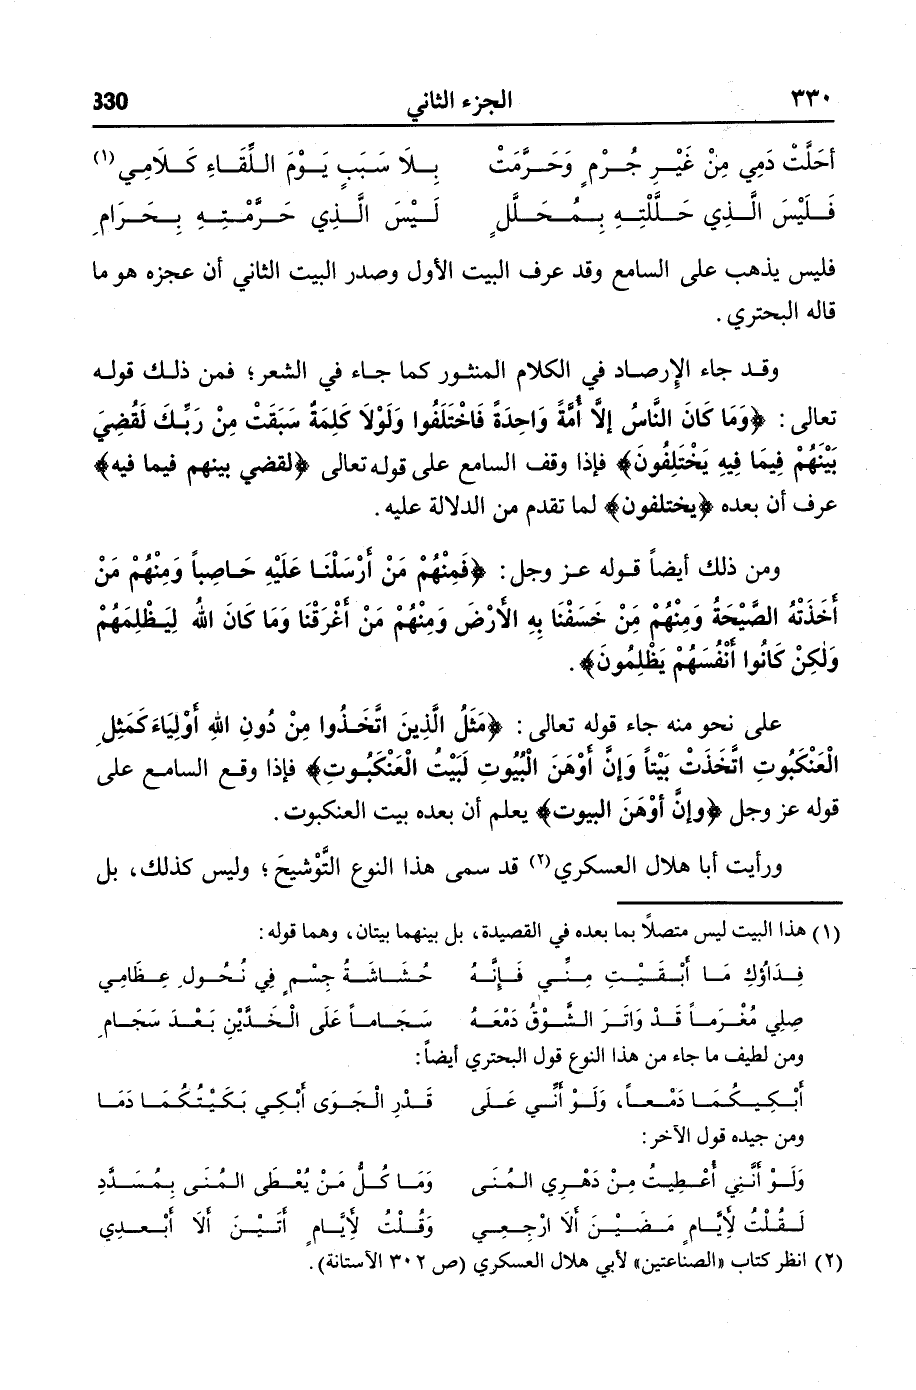 ٣٣٠ الجزء الثاني 330
أحَلَّتْ دَمِي مِنْ غَيْرِ جُرْمٍ وَحَرَّمَتْ بِلَا سَبَبٍ يَوْمَ اللِّقَاءِ كَلَامِي(١)
فَلَيْسَ الَّذِي حَلَّلْتِهِ بِمُحَلَّلٍ لَيْسَ الَّذِي حَرَّمْتِهِ بِحَرَامِ
فليس يذهب على السامع وقد عرف البيت الأول وصدر البيت الثاني أن عجزه هو ما
قاله البحتري.
وقد جاء الإرصاد في الكلام المنثور كما جاء في الشعر؛ فمن ذلك قوله
تعالى: ﴿وَمَا كَانَ النَّاسُ إلَّا أُمَّةً وَاحِدَةً فَاخْتَلَفُوا وَلَوْلَا كَلِمَةٌ سَبَقَتْ مِنْ رَبِّكَ لَقُضِيَ
بَيْنَهُمْ فِيمَا فِيهِ يَخْتَلِفُونَ﴾ فإذا وقف السامع على قوله تعالى ﴿لقضي بينهم فيما فيه﴾
عرف أن بعده ﴿يختلفون﴾ لما تقدم من الدلالة عليه.
ومن ذلك أيضاً قوله عز وجل: ﴿فَمِنْهُمْ مَنْ أَرْسَلْنَا عَلَيْهِ حَاصِباً وَمِنْهُمْ مَنْ
أَخَذَتْهُ الصَّيْحَةُ وَمِنْهُمْ مَنْ خَسَفْنَا بِهِ الأَرْضَ وَمِنْهُمْ مَنْ أَغْرَقْنَا وَمَا كَانَ اللهُ لِيَظْلِمَهُمْ
وَلٰكِنْ كَانُوا أَنْفُسَهُمْ يَظْلِمُونَ﴾.
على نحو منه جاء قوله تعالى: ﴿مَثَلُ الَّذِينَ اتَّخَذُوا مِنْ دُونِ اللهِ أَوْلِيَاءَ كَمَثَلِ
الْعَنْكَبُوتِ اتَّخَذَتْ بَيْتاً وَإنَّ أَوْهَنَ الْبُيُوتِ لَبَيْتُ الْعَنْكَبُوتِ﴾ فإذا وقع السامع على
قوله عز وجل ﴿وإنَّ أوْهَنَ البيوت﴾ يعلم أن بعده بيت العنكبوت.
ورأيت أبا هلال العسكري(٢) قد سمى هذا النوع التَّوْشِيحَ؛ وليس كذلك، بل
(١) هذا البيت ليس متصلاً بما بعده في القصيدة، بل بينهما بيتان، وهما قوله:
فِدَاؤُكِ مَا أَبْقَيْتِ مِنِّي فَإِنَّهُ حُشَاشَةُ جِسْمٍ فِي نُحُولِ عِظَامِي
صِلِي مُغْرَماً قَدْ وَاتَرَ الشَّوْقُ دَمْعَهُ سِجَاماً عَلَى الْخَدَّيْنِ بَعْدَ سِجَامِ
ومن لطيف ما جاء من هذا النوع قول البحتري أيضاً:
أَبْكِيكُمَا دَمْعاً، وَلَوْ أَنِّي عَلَى قَدْرِ الْجَوَى أَبْكِي بَكَيْتُكُمَا دَمَا
ومن جيده قول الآخر:
وَلَوْ أَنَّنِي أُعْطِيتُ مِنْ دَهْرِي المُنَى وَمَا كُلُّ مَنْ يُعْطَى المُنَى بِمُسَدَّدِ
لَقُلْتُ لِأَيَّامٍ مَضَيْنَ أَلَا ارْجِعِي وَقُلْتُ لِأَيَّامٍ أَتَيْنَ أَلَا أَبْعِدِي
(٢) انظر كتاب «الصناعتين» لأبي هلال العسكري (ص ٣٠٢ الآستانة).